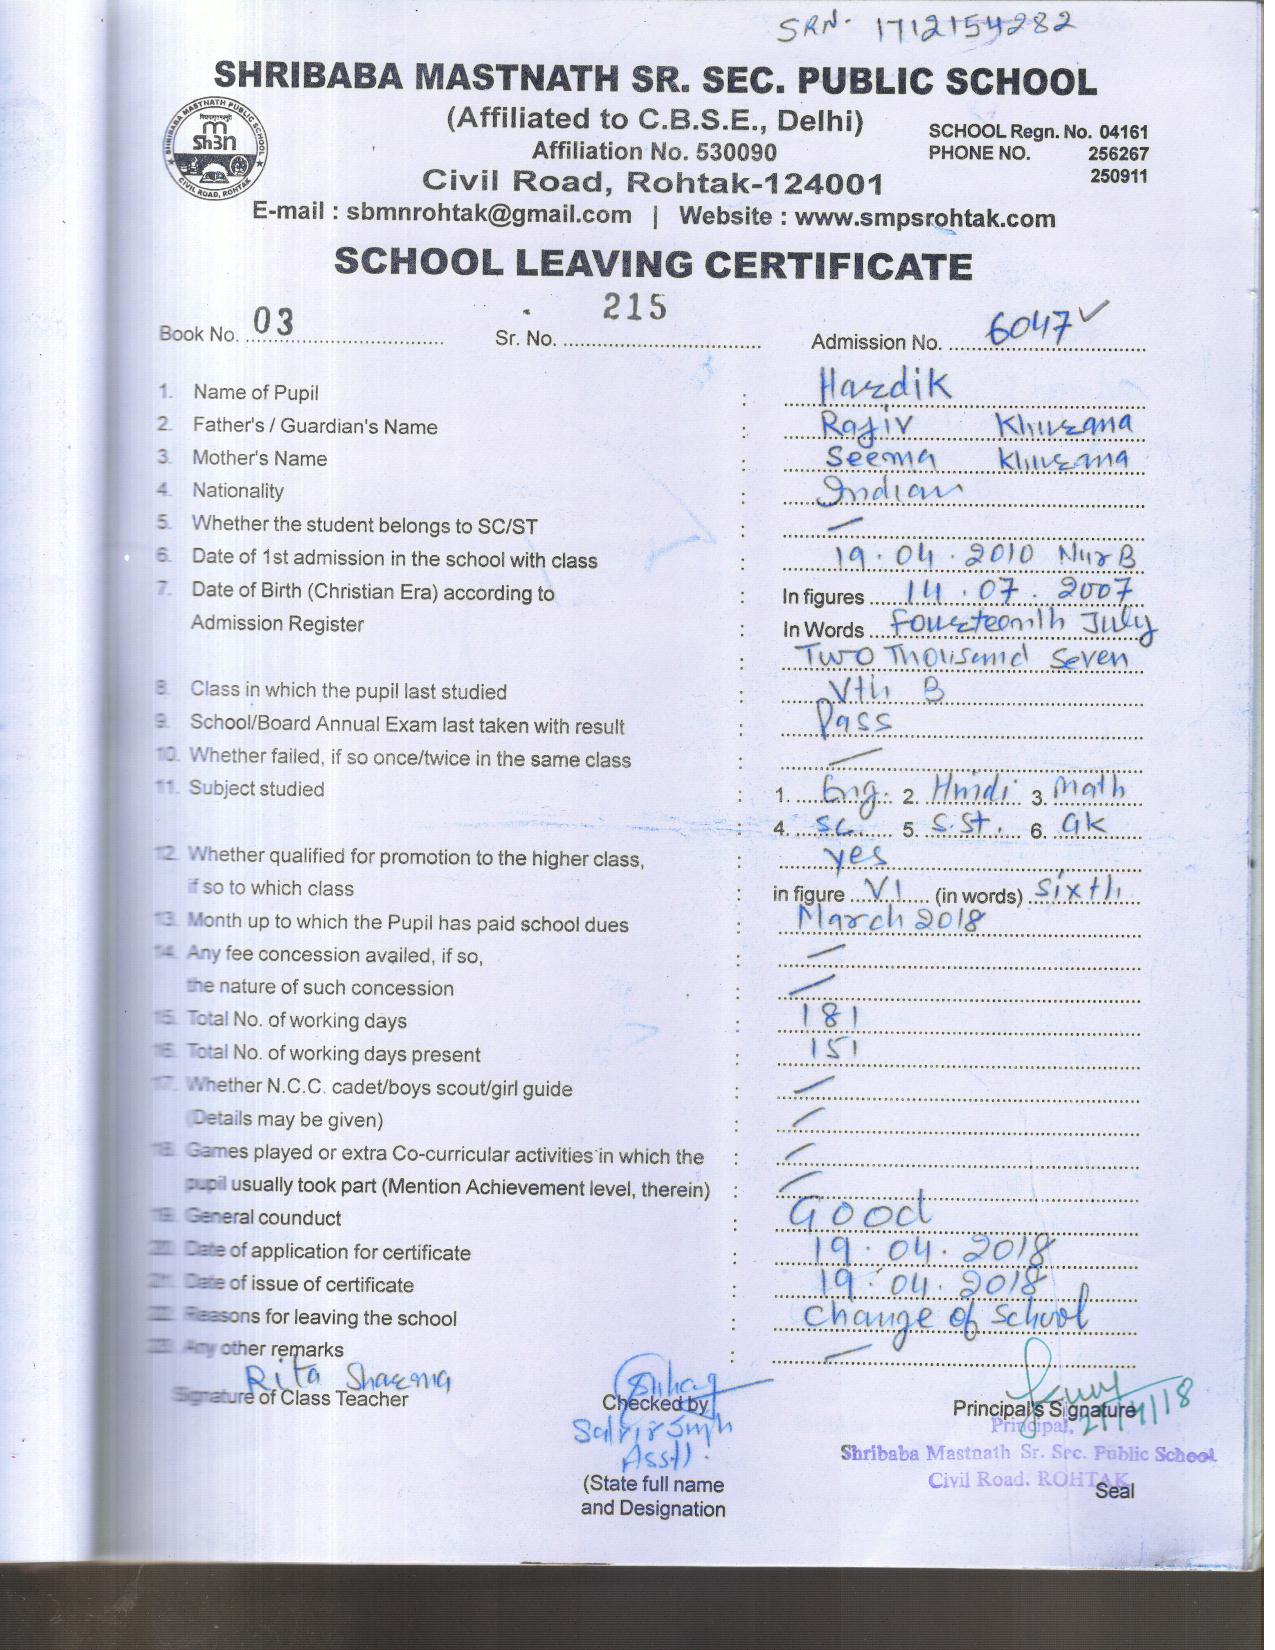 SRN- 1712154282
SHRIBABA MASTNATH SR. SEC. PUBLIC SCHOOL
(Affiliated to C.B.S.E., Delhi)
Affiliation No. 530090
SCHOOL Regn. No. 04161
PHONE NO. 256267
250911
Civil Road, Rohtak-124001
E-mail : sbmnrohtak@gmail.com | Website : www.smpsrohtak.com
MASTNATH PUBLIC SCHOOL
Sh3n
CIVIL ROAD, ROHTAK
SCHOOL LEAVING CERTIFICATE
Book No. 03 Sr. No. 215 Admission No. 6047
1. Name of Pupil : Hardik
2. Father's / Guardian's Name : Rajiv Khurana
3. Mother's Name : Seema Khurana
4. Nationality : Indian
5. Whether the student belongs to SC/ST : —
6. Date of 1st admission in the school with class : 19.04.2010 Nur B
7. Date of Birth (Christian Era) according to : In figures 14.07.2007
Admission Register : In Words Fourteenth July
: Two Thousand Seven
8. Class in which the pupil last studied : Vth B
9. School/Board Annual Exam last taken with result : Pass
10. Whether failed, if so once/twice in the same class : —
11. Subject studied : 1. Eng. 2. Hindi 3. Math
: 4. SC. 5. S.St. 6. GK
12. Whether qualified for promotion to the higher class, : yes
if so to which class : in figure VI (in words) Sixth
13. Month up to which the Pupil has paid school dues : March 2018
14. Any fee concession availed, if so, : —
the nature of such concession : —
15. Total No. of working days : 181
16. Total No. of working days present : 151
17. Whether N.C.C. cadet/boys scout/girl guide : —
(Details may be given) : —
18. Games played or extra Co-curricular activities in which the : —
pupil usually took part (Mention Achievement level, therein) : —
19. General counduct : Good
20. Date of application for certificate : 19.04.2018
21. Date of issue of certificate : 19.04.2018
22. Reasons for leaving the school : Change of School
23. Any other remarks : —
Rita Sharma
Signature of Class Teacher
Checked by
Satvir Singh
Asstt.
(State full name
and Designation
Principal's Signature
Principal,
Shribaba Mastnath Sr. Sec. Public School
Civil Road. ROHTAK
Seal